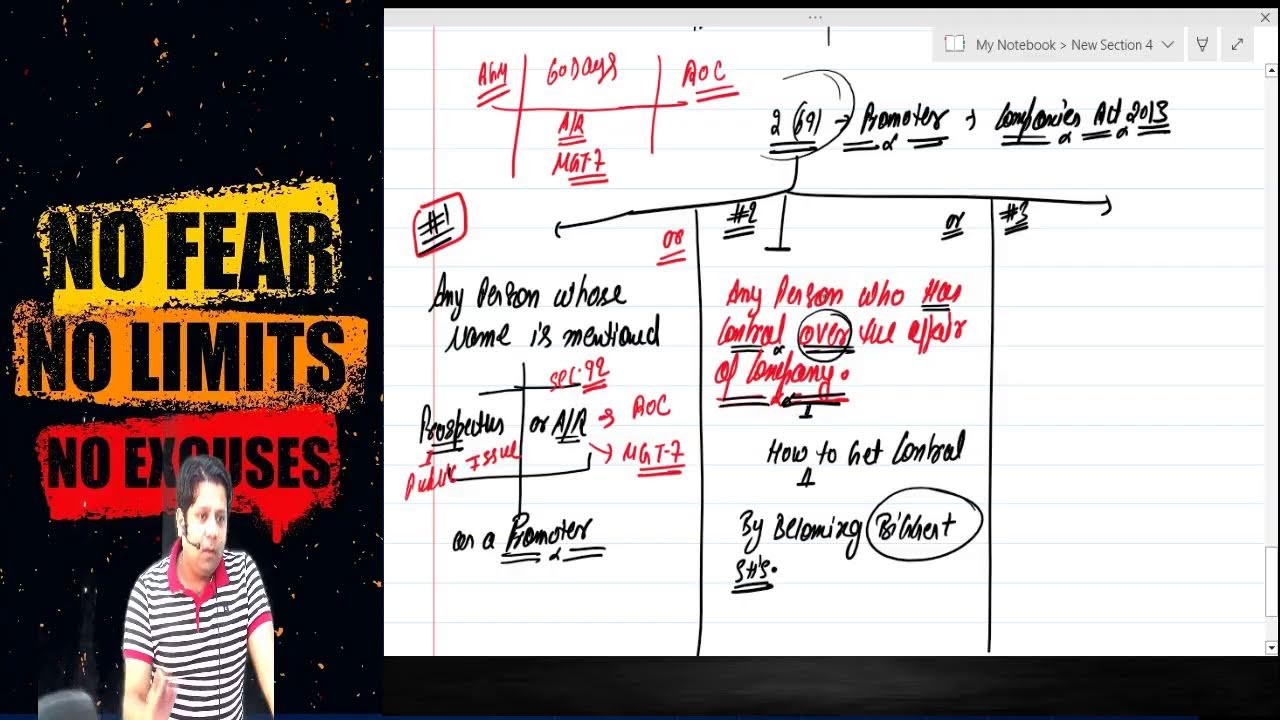 My Notebook > New Section 4
AGM
60 Days
ROC
A/R
MGT-7
2(69) → Promoter → Companies Act 2013
#1
or
#2
or
#3
Any Person whose
Name is mentioned
Sec. 92
Prospectus or A/R → ROC
→ MGT-7
Public Issue
as a Promoter
Any Person who Has
Control over the affair
of Company.
How to Get Control
By Becoming Biggest
SH's.
NO FEAR
NO LIMITS
NO EXCUSES